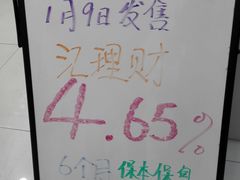 1月9日发售
汇理财
4.65%
6个月 保本保息